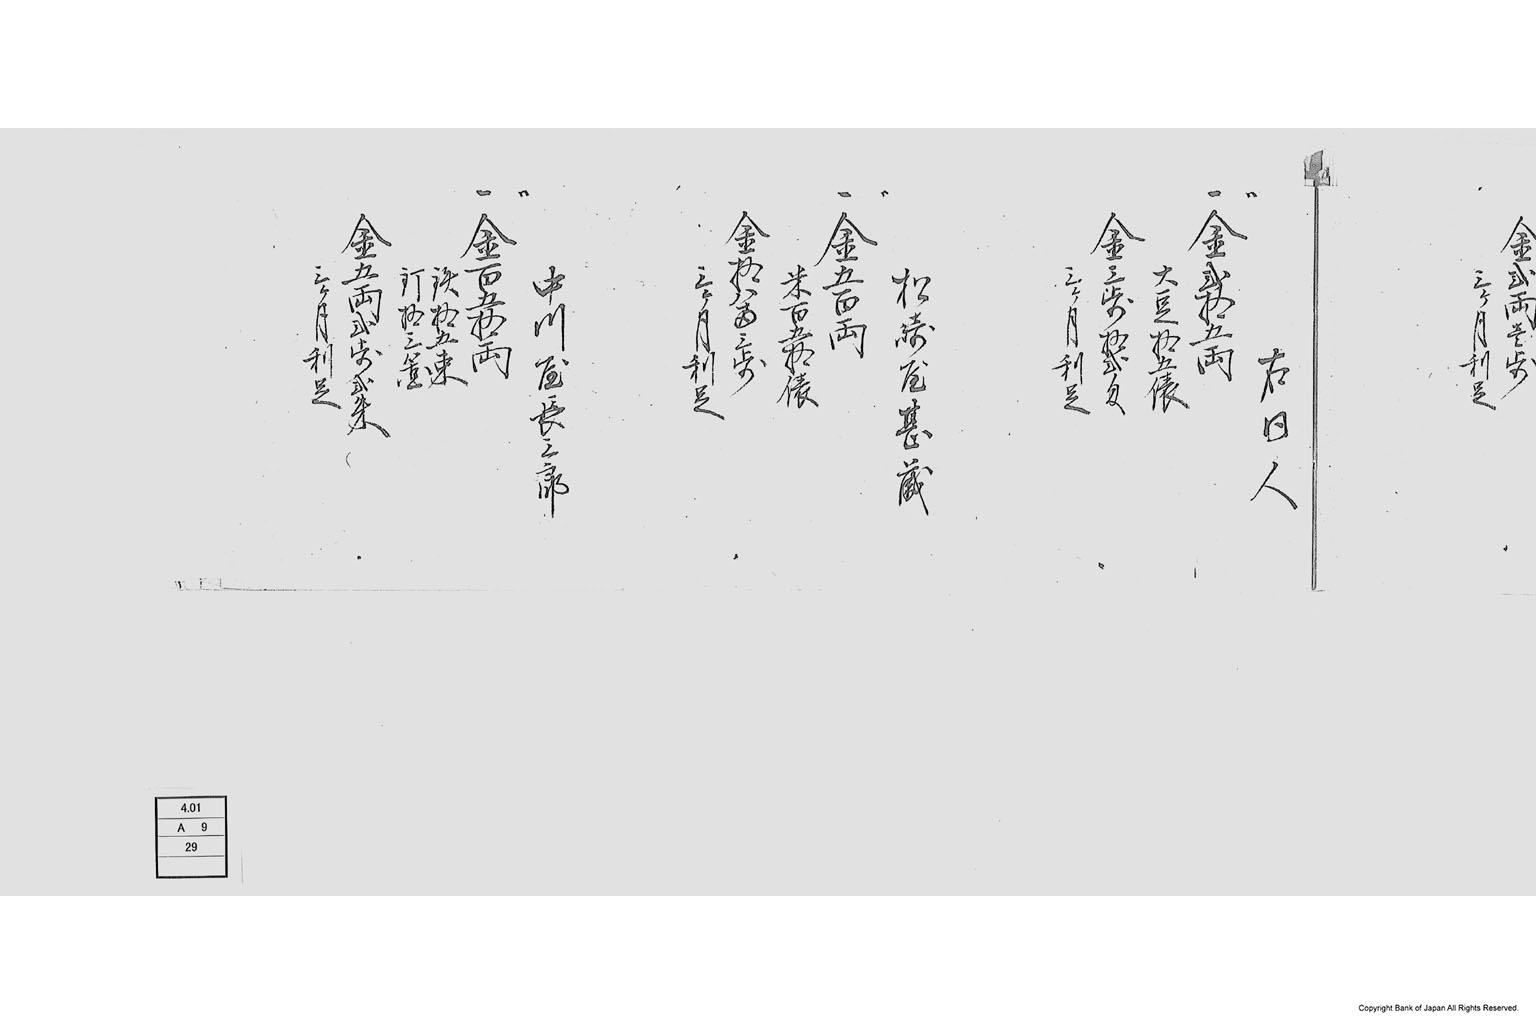 金弐両壱歩
三ヶ月利足
右同人
一金弐拾五両
大豆拾五俵
金三歩拾弐匁
三ヶ月利足
松崎屋甚蔵
一金五百両
米百五拾俵
金拾八両三歩
三ヶ月利足
中川屋長三郎
一金百五拾両
鉄拾五束
釘拾三箇
金五両弐歩弐朱
三ヶ月利足
4.01
A 9
29
Copyright Bank of Japan All Rights Reserved.